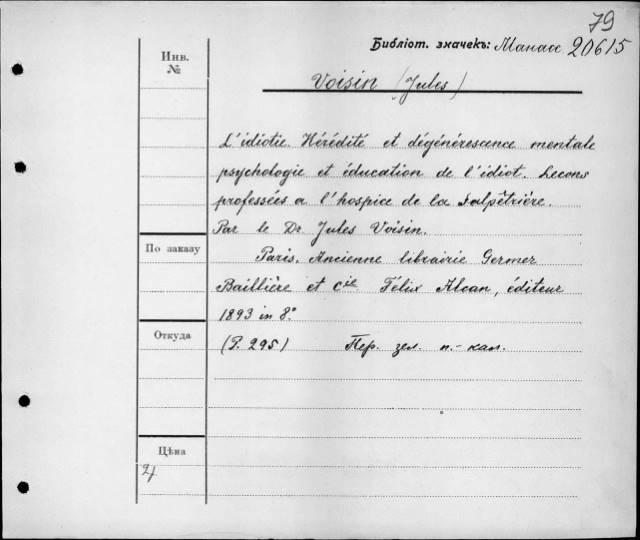 79
Библіот. значекъ: Манасс 20615
Инв.
№
Voisin (Jules)
L'idiotie. Hérédité et dégénérescence mentale
psychologie et éducation de l'idiot. Lecons
professées a l'hospice de la Salpêtriére.
Par le Dr. Jules Voisin.
По заказу
Paris. Ancienne librairie Germer
Baillière et Cie Félix Alcan, éditeur
1893 in 8.°
Откуда
(P. 295) Пер. зел. п.-кал.
Цѣна